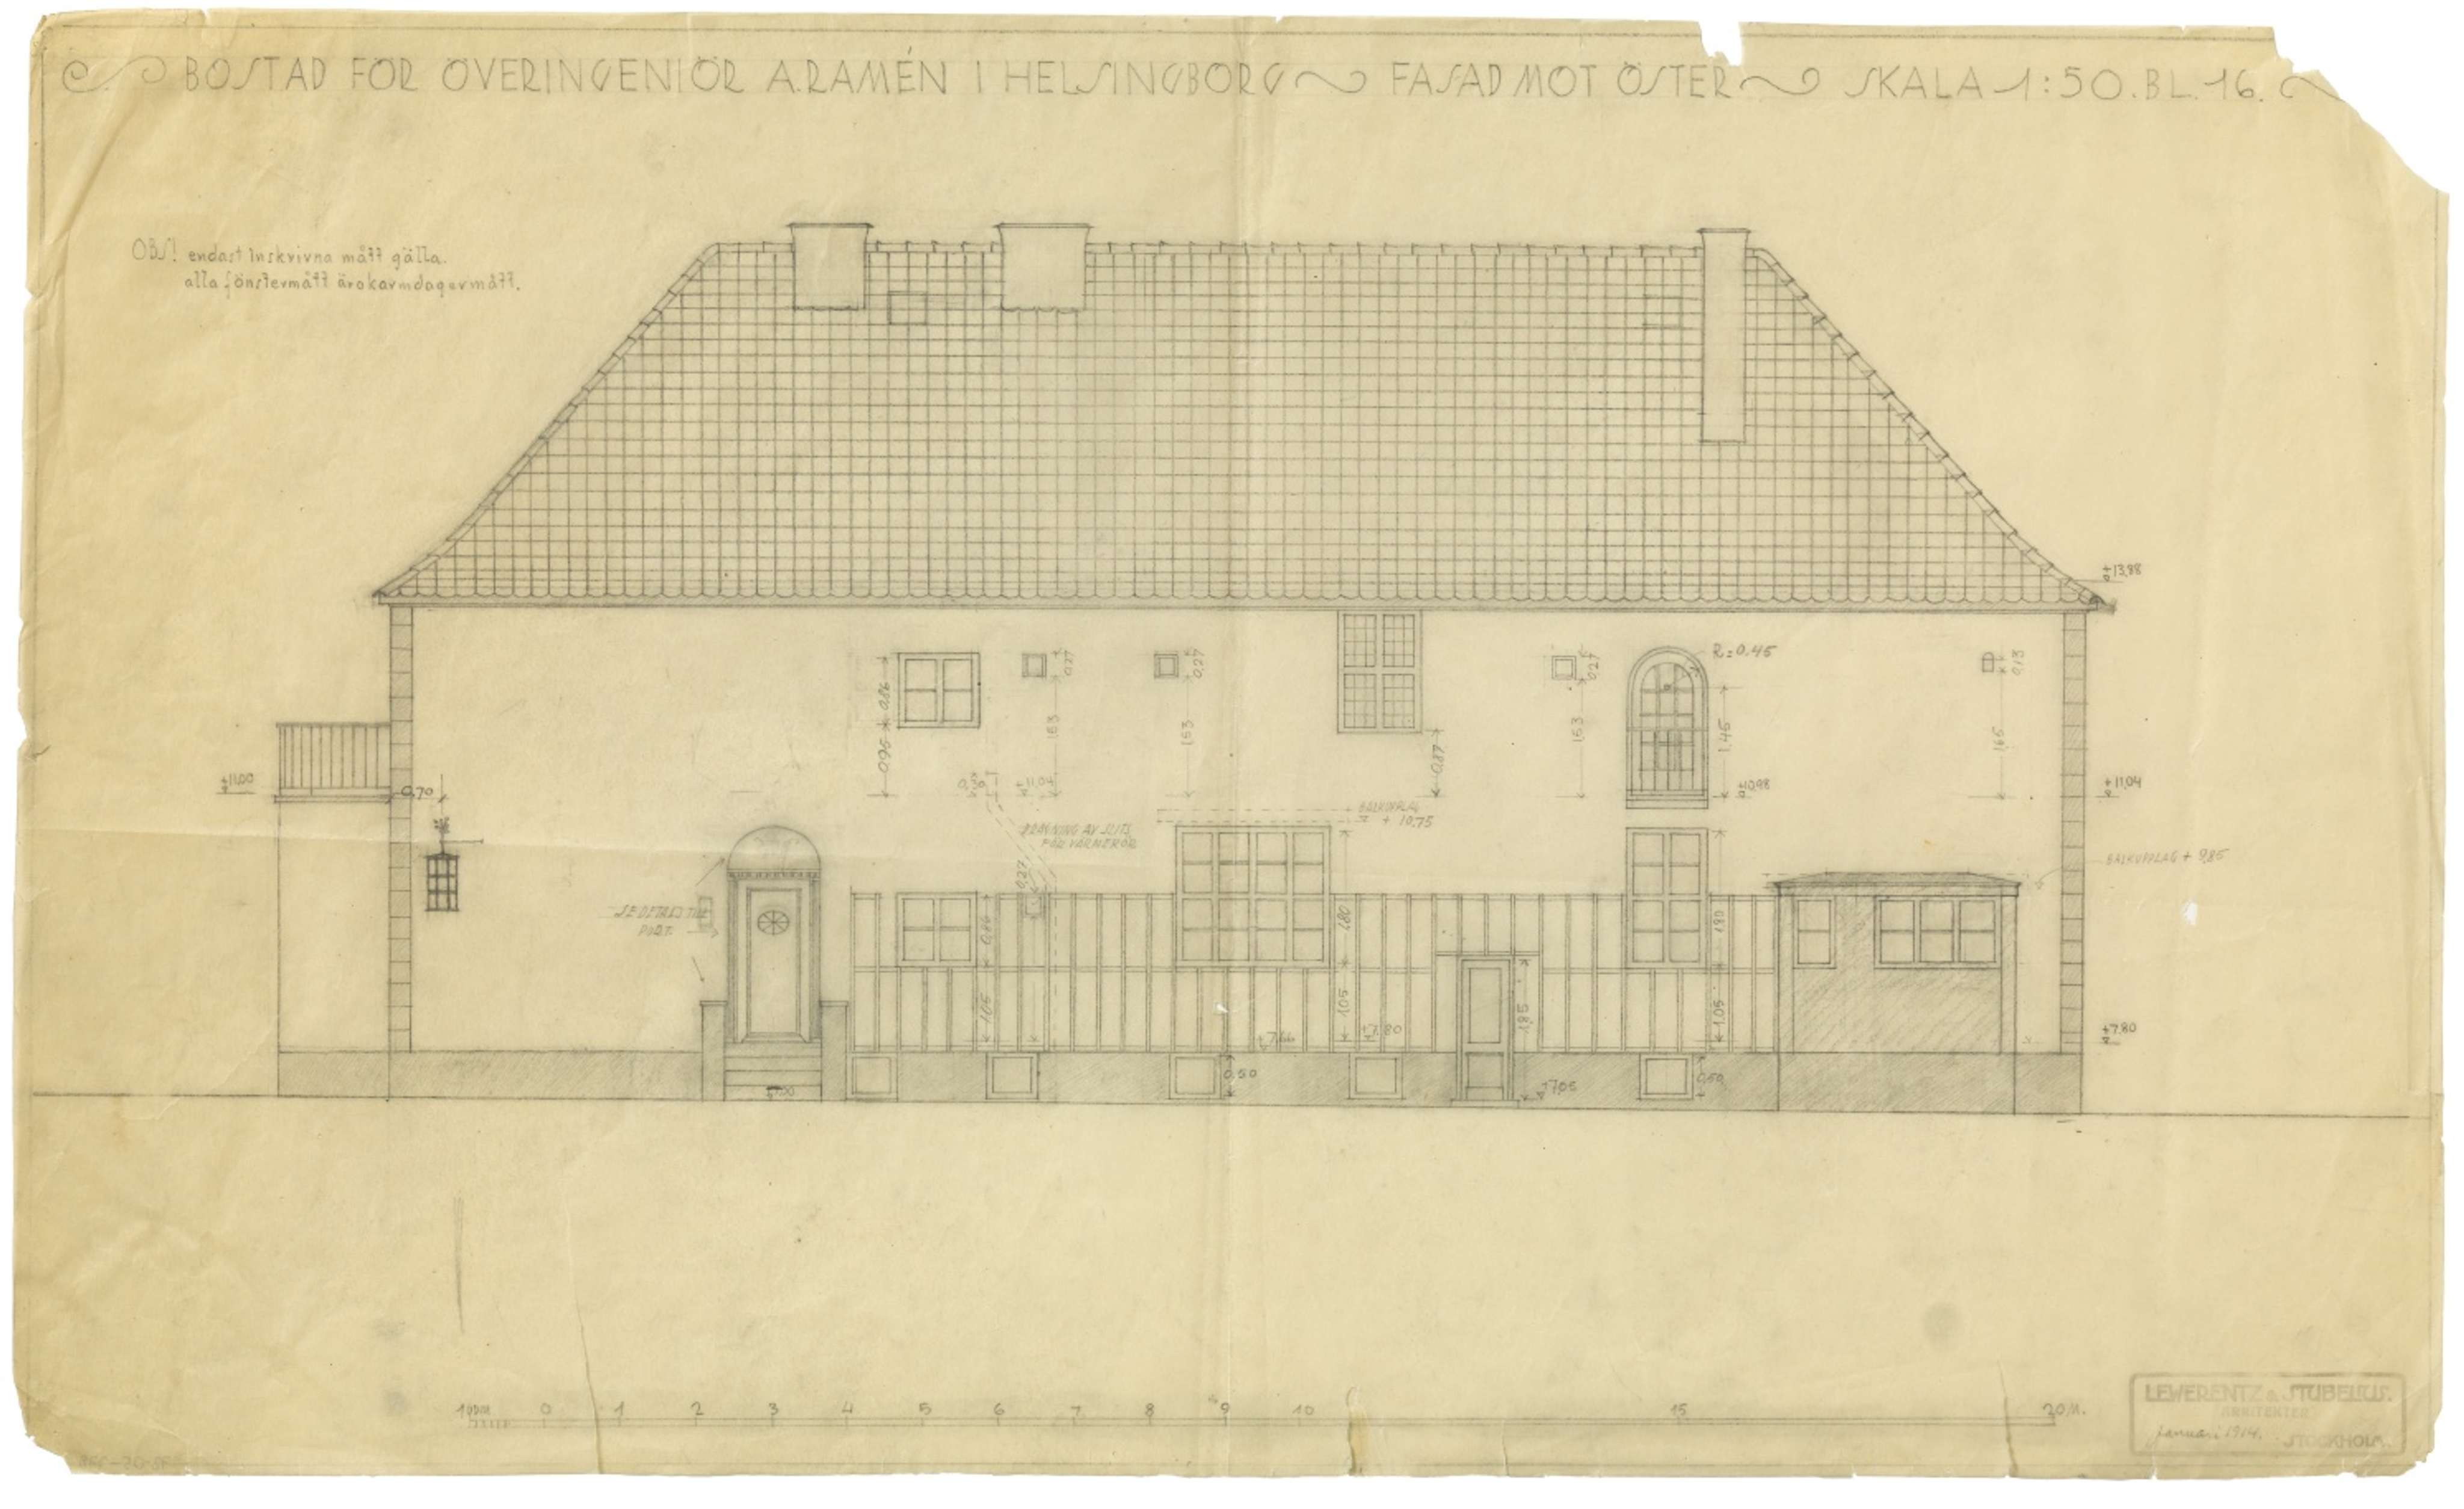 BOSTAD FÖR ÖVERINGENIÖR A. RAMÉN I HELSINGBORG FASAD MOT ÖSTER SKALA 1:50. BL. 16.
OBS! endast inskrivna mått gälla.
alla fönstermått äro karmdagermått.
+13,88
R=0.45
0,27
0,27
0,27
0,13
0,86
0,95
1,53
1,53
0,87
1,53
1,45
1,65
+11,00
0,70
0,30
+11,04
+10,98
+11,04
BALKUPPLAG
+ 10,75
DRAGNING AV SLITS
FÖR VÄRMERÖR
0,27
BALKUPPLAG + 9,85
SE DETALJ TILL
PORT.
0,86
1,80
1,80
1,05
1,05
1,85
1,05
+7,80
+7,80
0,50
+7,05
0,50
1 0 DM. 0 1 2 3 4 5 6 7 8 9 10 15 20 M.
LEWERENTZ & STUBELIUS.
ARKITEKTER
Januari 1914. STOCKHOLM.